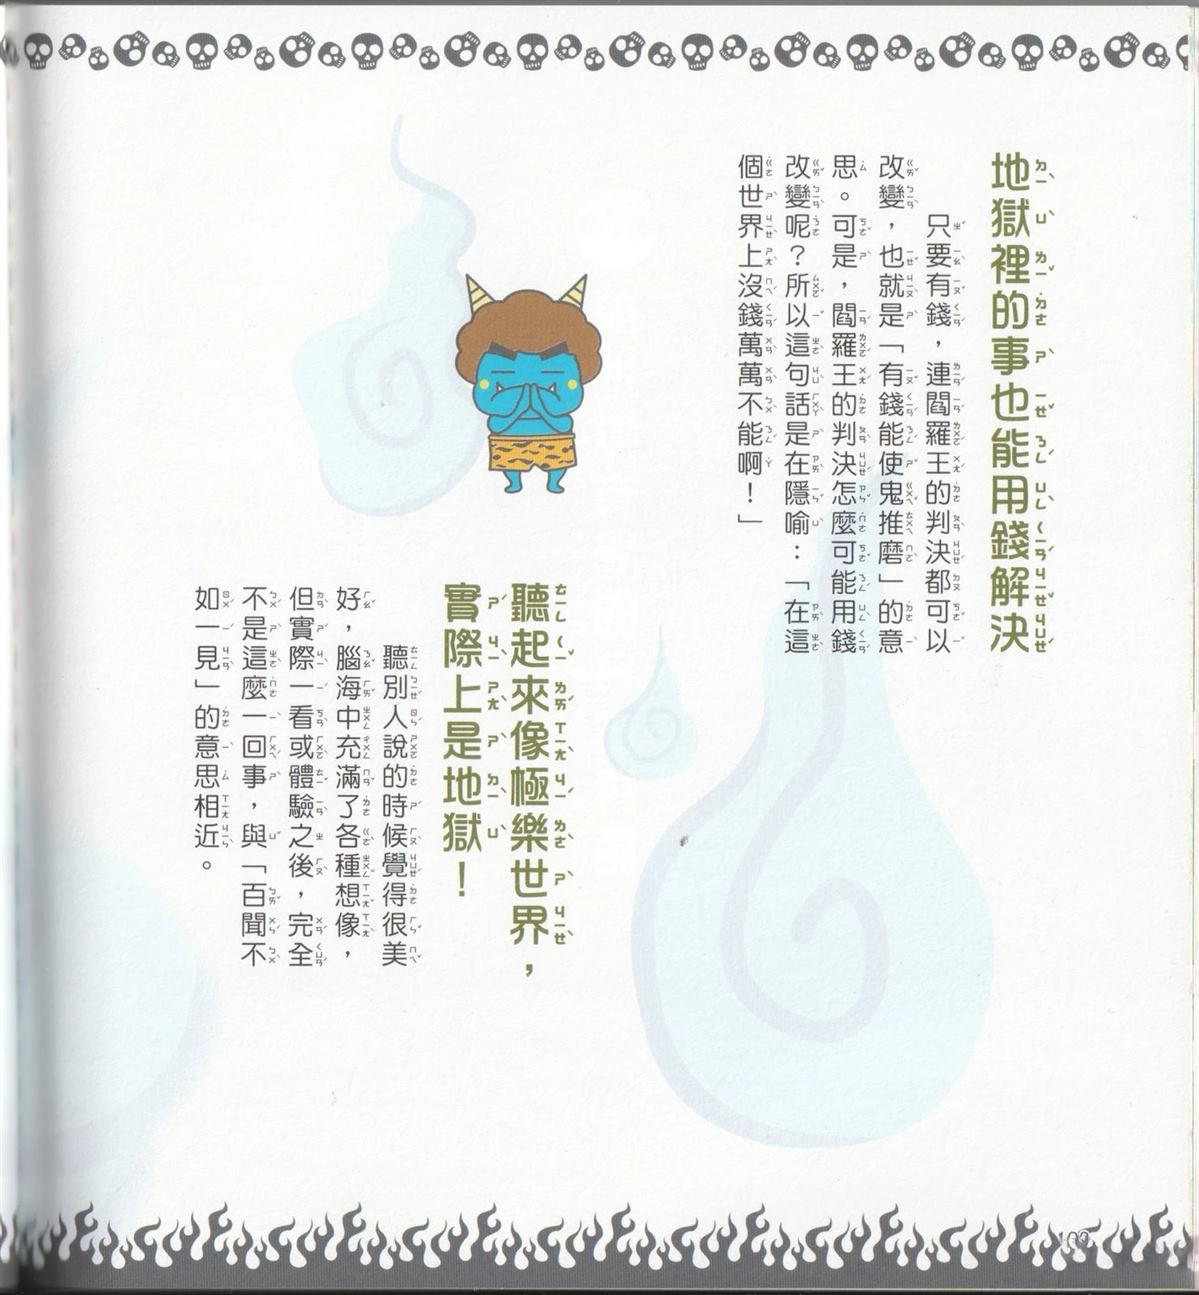 地獄裡的事也能用錢解決
只要有錢，連閻羅王的判決都可以
改變，也就是「有錢能使鬼推磨」的意
思。可是，閻羅王的判決怎麼可能用錢
改變呢？所以這句話是在隱喻：「在這
個世界上沒錢萬萬不能啊！」
聽起來像極樂世界，
實際上是地獄！
聽別人說的時候覺得很美
好，腦海中充滿了各種想像，
但實際一看或體驗之後，完全
不是這麼一回事，與「百聞不
如一見」的意思相近。